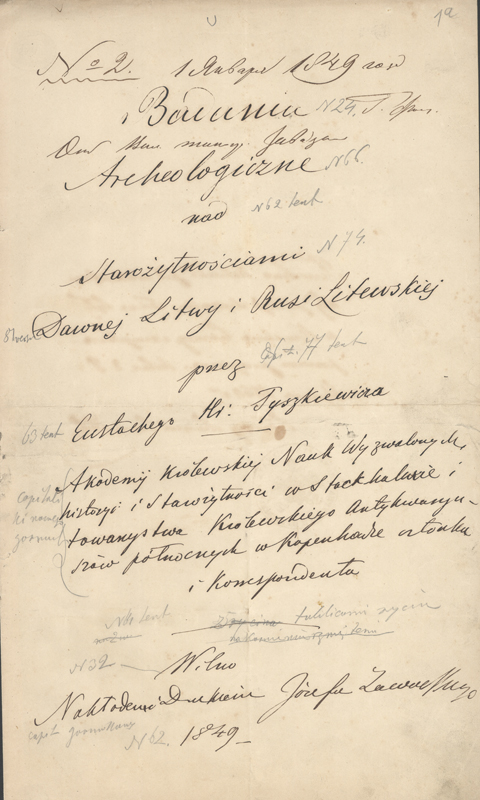 1a
No 2. 1 Января 1849 года
Badania N 24.
Archeologiczne N 66.
nad N 62 tent
Starożytnościami N 74.
Dawnej Litwy i Rusi Litewskiej
przez 77 tent
63 tent Eustachego Hr. Tyszkiewicza
Akademij Królewskiej Nauk Wyzwolonych,
historyi i Starożytności w Stockholmie i
towarzystwa Królewskiego Antykwaryu-
szów północnych w Kopenhadze członka
i Korrespondenta
tablicami rycin
N 32 Wilno
Nakładem i Drukiem Józefa Zawadzkiego
N 62. 1849